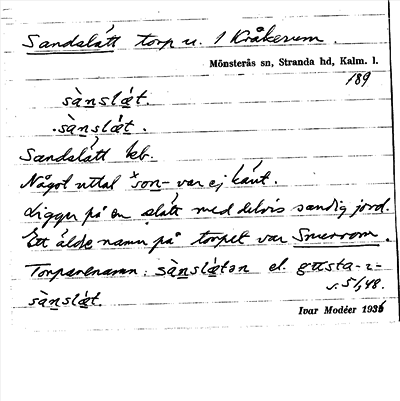 Sandslätt torp u. 1 Kråkerum.
Mönsterås sn, Stranda hd, Kalm. l.
189
sànslæ̀t.
sànslæ̀t.
Sandslätt kb.
Något uttal *son- var ej känt.
Ligger på en slätt med delvis sandig jord.
Ett äldre namn på torpet var Smerrom.
Torparenamn: sànslætən el. gusta-ɪ-
s. 51, 48.
sànslæ̀t.
Ivar Modéer 1936